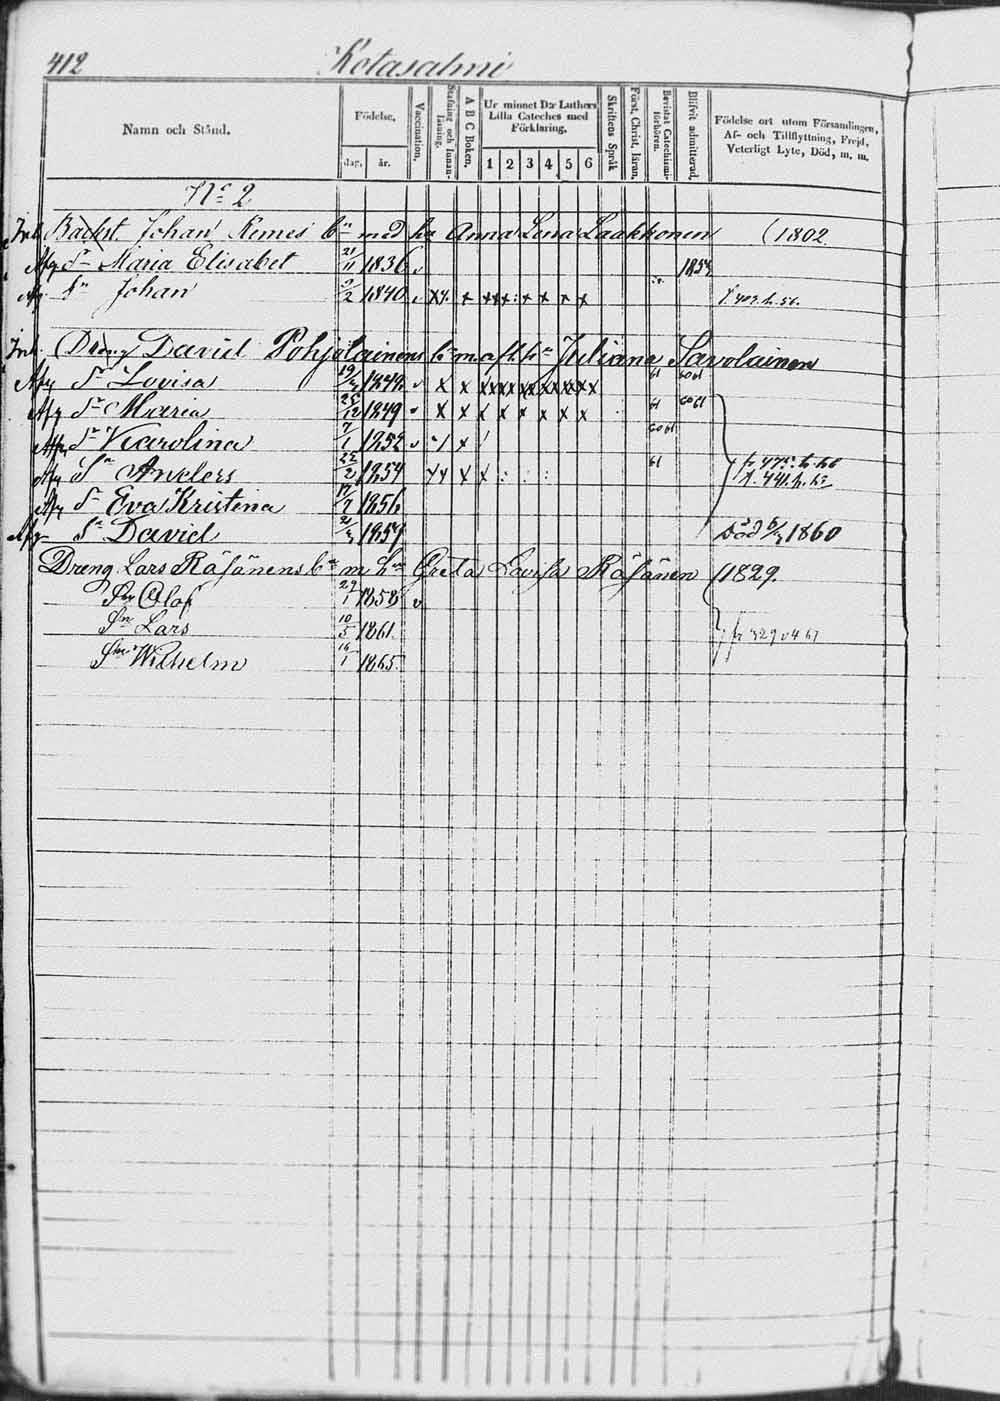 412 Kotasalmi
Namn och Stånd.
Födelse,
dag. år.
Vaccination.
Stafning och Innan-läsning.
A B C Boken.
Ur minnet D:r Luthers Lilla Cateches med Förklaring.
1 2 3 4 5 6
Skriftens Språk
Först. Christ. läran.
Bevistat Catechismi-förhören.
Blifvit admitterad.
Födelse ort utom Församlingen, Af- och Tillflyttning, Frejd, Veterligt Lyte, Död, m. m.
No 2
Inh. Backst. Johan Kemes bn med ha Anna Lena Laakkonen (1802.
Afg Dr Maria Elisabet 21/11 1836 1854
Afg. Sn Johan 9/2 1840 x x x x x x x x
Inh. Dräng David Pohjolainens bn m afl. hn Juliana Savolainen
Afg Dr Lovisa 19/ 1847 x x x x x x x x 61 60 61
Afg Dr Maria 25/12 1849 x x x x x x x 61 60 61
Afg Dr Karolina 7/1 1852 x 60 61
Afg Sn Anders 22/2 1854 x x x 61
Afg Dr Eva Kristina 17/2 1856
Afg Sn David 1859 Död 1860
Dreng Lars Räsänens bn m hn Greta Lovisa Räsänen 1829.
Sn Olof 29/1 1858
Sn Lars 10/5 1861.
Sn Wilhelm 16/1 1865.